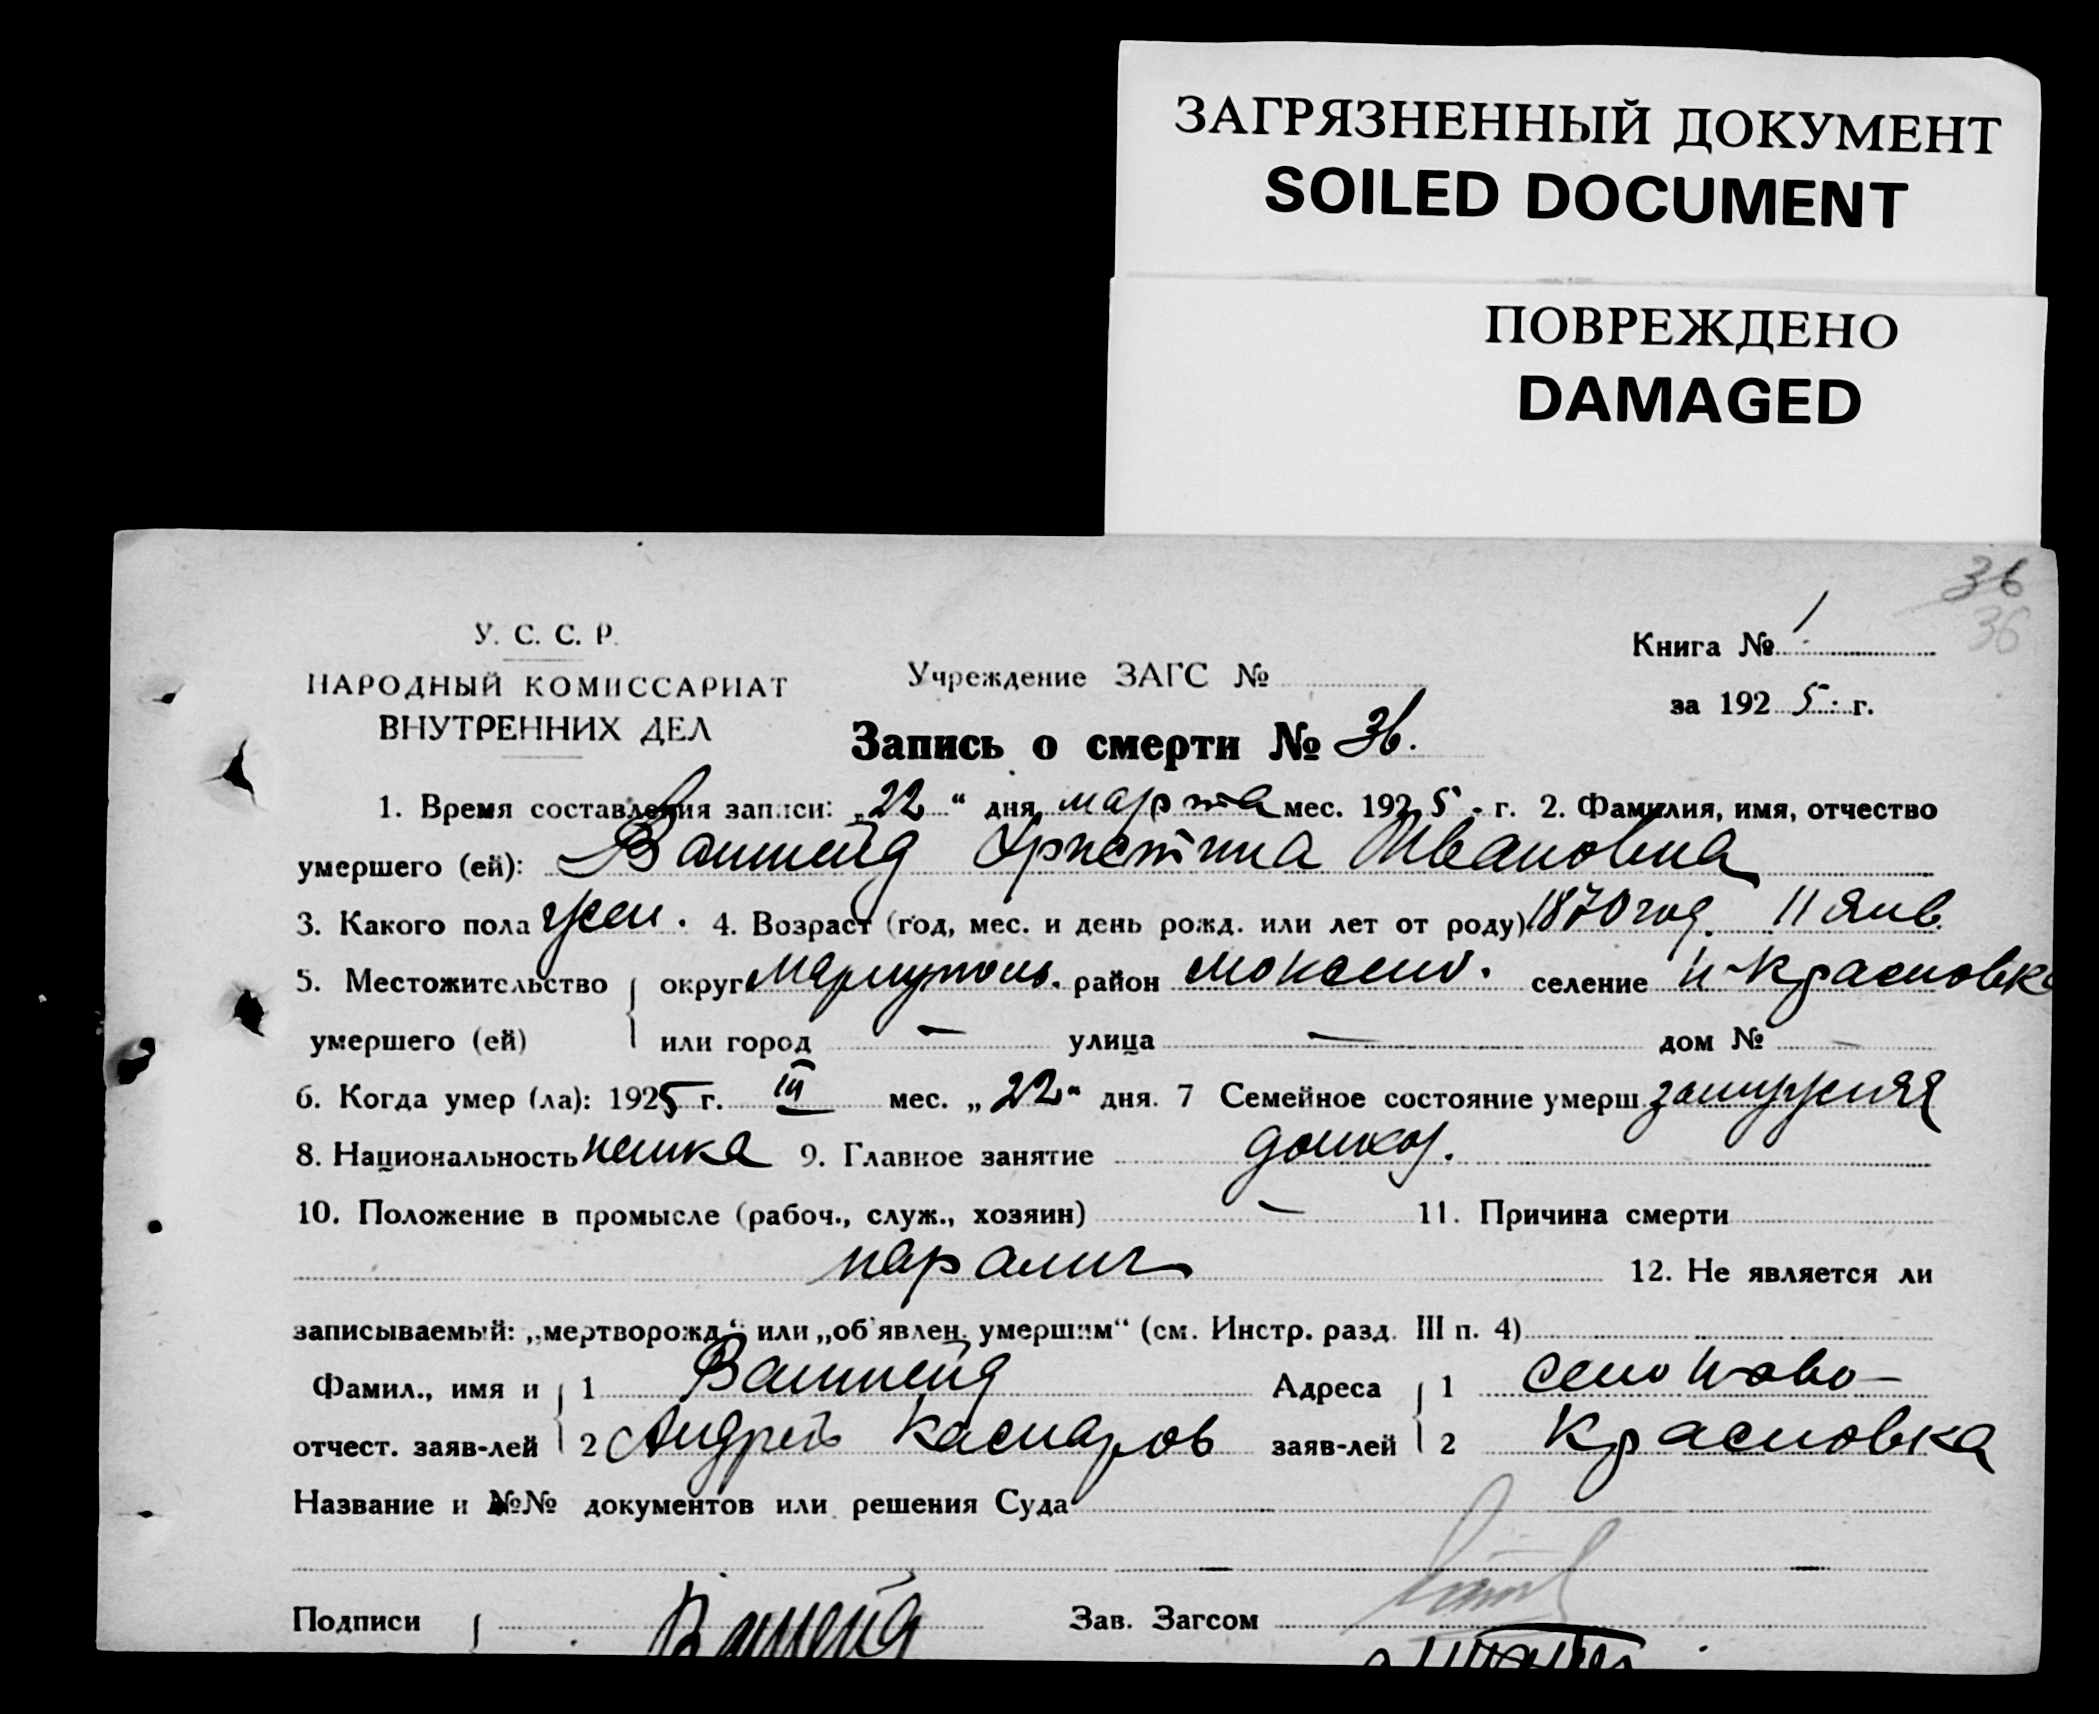 ЗАГРЯЗНЕННЫЙ ДОКУМЕНТ
SOILED DOCUMENT
ПОВРЕЖДЕНО
DAMAGED
36
36
У. С. С. Р.
НАРОДНЫЙ КОМИССАРИАТ
ВНУТРЕННИХ ДЕЛ
Учреждение ЗАГС №
Книга № 1
за 1925 г.
Запись о смерти № 36.
1. Время составления записи: „22“ дня марта мес. 1925 г. 2. Фамилия, имя, отчество
умершего (ей): Ваннейд Христина Ивановна
3. Какого пола жен. 4. Возраст (год, мес. и день рожд. или лет от роду) 1870 год. 11 янв.
5. Местожительство округ Мариуполь. район селение Н-Красновка
умершего (ей) или город — улица — дом № —
6. Когда умер (ла): 1925 г. III мес. „22“ дня. 7 Семейное состояние умерш. замужняя
8. Национальность немка 9. Главное занятие домхоз.
10. Положение в промысле (рабоч., служ., хозяин) — 11. Причина смерти
паралич 12. Не является ли
записываемый: „мертворожд.“ или „об'явлен. умершим“ (см. Инстр. разд. III п. 4)
Фамил., имя и 1 Ваннейд Адреса 1 село Ново-
отчест. заяв-лей 2 Андрей Каспаров заяв-лей 2 Красновка
Название и №№ документов или решения Суда
Подписи Ваннейд Зав. Загсом